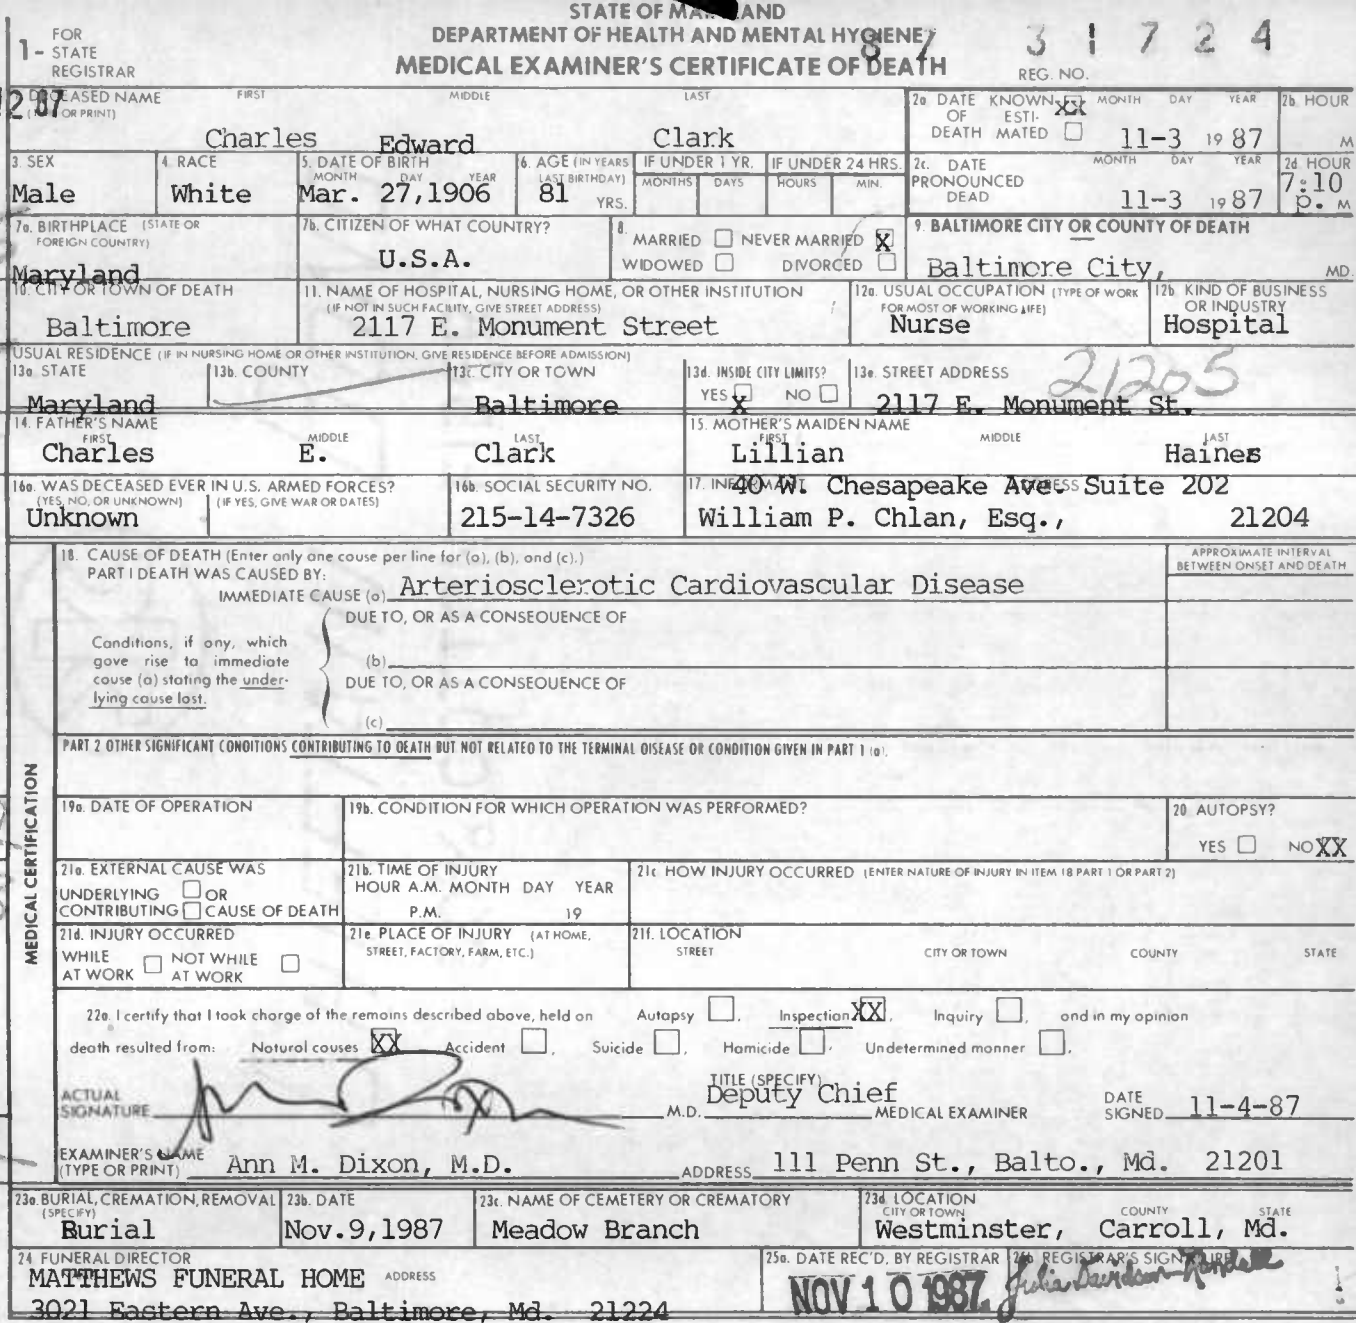 STATE OF MA AND
DEPARTMENT OF HEALTH AND MENTAL HYGIENE
MEDICAL EXAMINER'S CERTIFICATE OF DEATH
1- FOR STATE REGISTRAR
87 31724
REG. NO.
DECEASED NAME FIRST MIDDLE LAST
(TYPE OR PRINT)
Charles Edward Clark
2a DATE KNOWN XX MONTH DAY YEAR
OF ESTI-
DEATH MATED ☐ 11-3 1987
2b. HOUR
M
3. SEX
Male
4. RACE
White
5. DATE OF BIRTH
MONTH DAY YEAR
Mar. 27,1906
6. AGE (IN YEARS LAST BIRTHDAY)
81 YRS.
IF UNDER 1 YR.
MONTHS DAYS
IF UNDER 24 HRS.
HOURS MIN.
2c. DATE PRONOUNCED DEAD
MONTH DAY YEAR
11-3 1987
2d HOUR
7:10
p. M
7a. BIRTHPLACE (STATE OR FOREIGN COUNTRY)
Maryland
7b. CITIZEN OF WHAT COUNTRY?
U.S.A.
8. MARRIED ☐ NEVER MARRIED X
WIDOWED ☐ DIVORCED ☐
9. BALTIMORE CITY OR COUNTY OF DEATH
Baltimore City, MD.
10. CITY OR TOWN OF DEATH
Baltimore
11. NAME OF HOSPITAL, NURSING HOME, OR OTHER INSTITUTION
(IF NOT IN SUCH FACILITY, GIVE STREET ADDRESS)
2117 E. Monument Street
12a. USUAL OCCUPATION (TYPE OF WORK FOR MOST OF WORKING LIFE)
Nurse
12b. KIND OF BUSINESS OR INDUSTRY
Hospital
USUAL RESIDENCE (IF IN NURSING HOME OR OTHER INSTITUTION, GIVE RESIDENCE BEFORE ADMISSION)
13a STATE
Maryland
13b. COUNTY
13c. CITY OR TOWN
Baltimore
13d. INSIDE CITY LIMITS?
YES X NO ☐
13e. STREET ADDRESS
21205
2117 E. Monument St.
14. FATHER'S NAME
FIRST MIDDLE LAST
Charles E. Clark
15. MOTHER'S MAIDEN NAME
FIRST MIDDLE LAST
Lillian Haines
16a. WAS DECEASED EVER IN U.S. ARMED FORCES?
(YES, NO, OR UNKNOWN) (IF YES, GIVE WAR OR DATES)
Unknown
16b. SOCIAL SECURITY NO.
215-14-7326
17. INFORMANT ADDRESS
40 W. Chesapeake Ave. Suite 202
William P. Chlan, Esq., 21204
MEDICAL CERTIFICATION
18. CAUSE OF DEATH (Enter only one cause per line for (a), (b), and (c).)
APPROXIMATE INTERVAL BETWEEN ONSET AND DEATH
PART I DEATH WAS CAUSED BY:
IMMEDIATE CAUSE (a) Arteriosclerotic Cardiovascular Disease
DUE TO, OR AS A CONSEQUENCE OF
Conditions, if any, which
gave rise to immediate
cause (a) stating the under-
lying cause last.
(b)
DUE TO, OR AS A CONSEQUENCE OF
(c)
PART 2 OTHER SIGNIFICANT CONDITIONS CONTRIBUTING TO DEATH BUT NOT RELATED TO THE TERMINAL DISEASE OR CONDITION GIVEN IN PART 1 (a).
19a. DATE OF OPERATION
19b. CONDITION FOR WHICH OPERATION WAS PERFORMED?
20 AUTOPSY?
YES ☐ NO XX
21a. EXTERNAL CAUSE WAS
UNDERLYING ☐ OR
CONTRIBUTING ☐ CAUSE OF DEATH
21b. TIME OF INJURY
HOUR A.M. MONTH DAY YEAR
P.M. 19
21c HOW INJURY OCCURRED (ENTER NATURE OF INJURY IN ITEM 18 PART 1 OR PART 2)
21d. INJURY OCCURRED
WHILE AT WORK ☐ NOT WHILE AT WORK ☐
21e PLACE OF INJURY (AT HOME, STREET, FACTORY, FARM, ETC.)
21f. LOCATION
STREET CITY OR TOWN COUNTY STATE
22a. I certify that I took charge of the remains described above, held on Autopsy ☐, Inspection XX, Inquiry ☐, and in my opinion
death resulted from: Natural causes XX Accident ☐, Suicide ☐, Homicide ☐, Undetermined manner ☐,
ACTUAL SIGNATURE M.D.
TITLE (SPECIFY)
Deputy Chief MEDICAL EXAMINER
DATE SIGNED 11-4-87
EXAMINER'S NAME (TYPE OR PRINT) Ann M. Dixon, M.D.
ADDRESS 111 Penn St., Balto., Md. 21201
23a. BURIAL, CREMATION, REMOVAL (SPECIFY)
Burial
23b. DATE
Nov.9,1987
23c. NAME OF CEMETERY OR CREMATORY
Meadow Branch
23d. LOCATION
CITY OR TOWN COUNTY STATE
Westminster, Carroll, Md.
24 FUNERAL DIRECTOR
MATTHEWS FUNERAL HOME ADDRESS
3021 Eastern Ave., Baltimore, Md. 21224
25a. DATE REC'D. BY REGISTRAR
NOV 10 1987
25b. REGISTRAR'S SIGNATURE
Julia Davidson-Randall